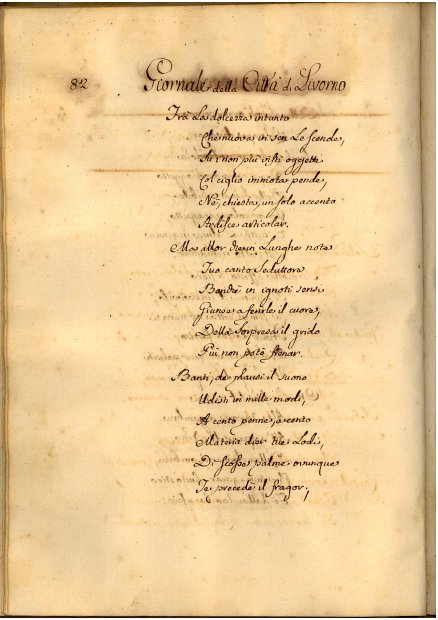 82
Giornale della Città di Livorno
Trà La dolcezza intanto
Che nuova in sen Le scende,
Su i non più infisi oggetti
Col ciglio immota pende,
Nè, chiesta, un solo accento
Ardisce articolar.
Ma allor che in Lunghe note
Tuo canto Seduttore
Benchè in ignoti sensi
Giunse a ferirle il cuore,
Della Sorpresa il grido
Più non potè frenar.
Banti, de plausi il suono
Udisti in mille modi,
A cento penne, a cento
Materia dier tue Lodi,
Di scosse palme ovunque
Te precede il fragor,